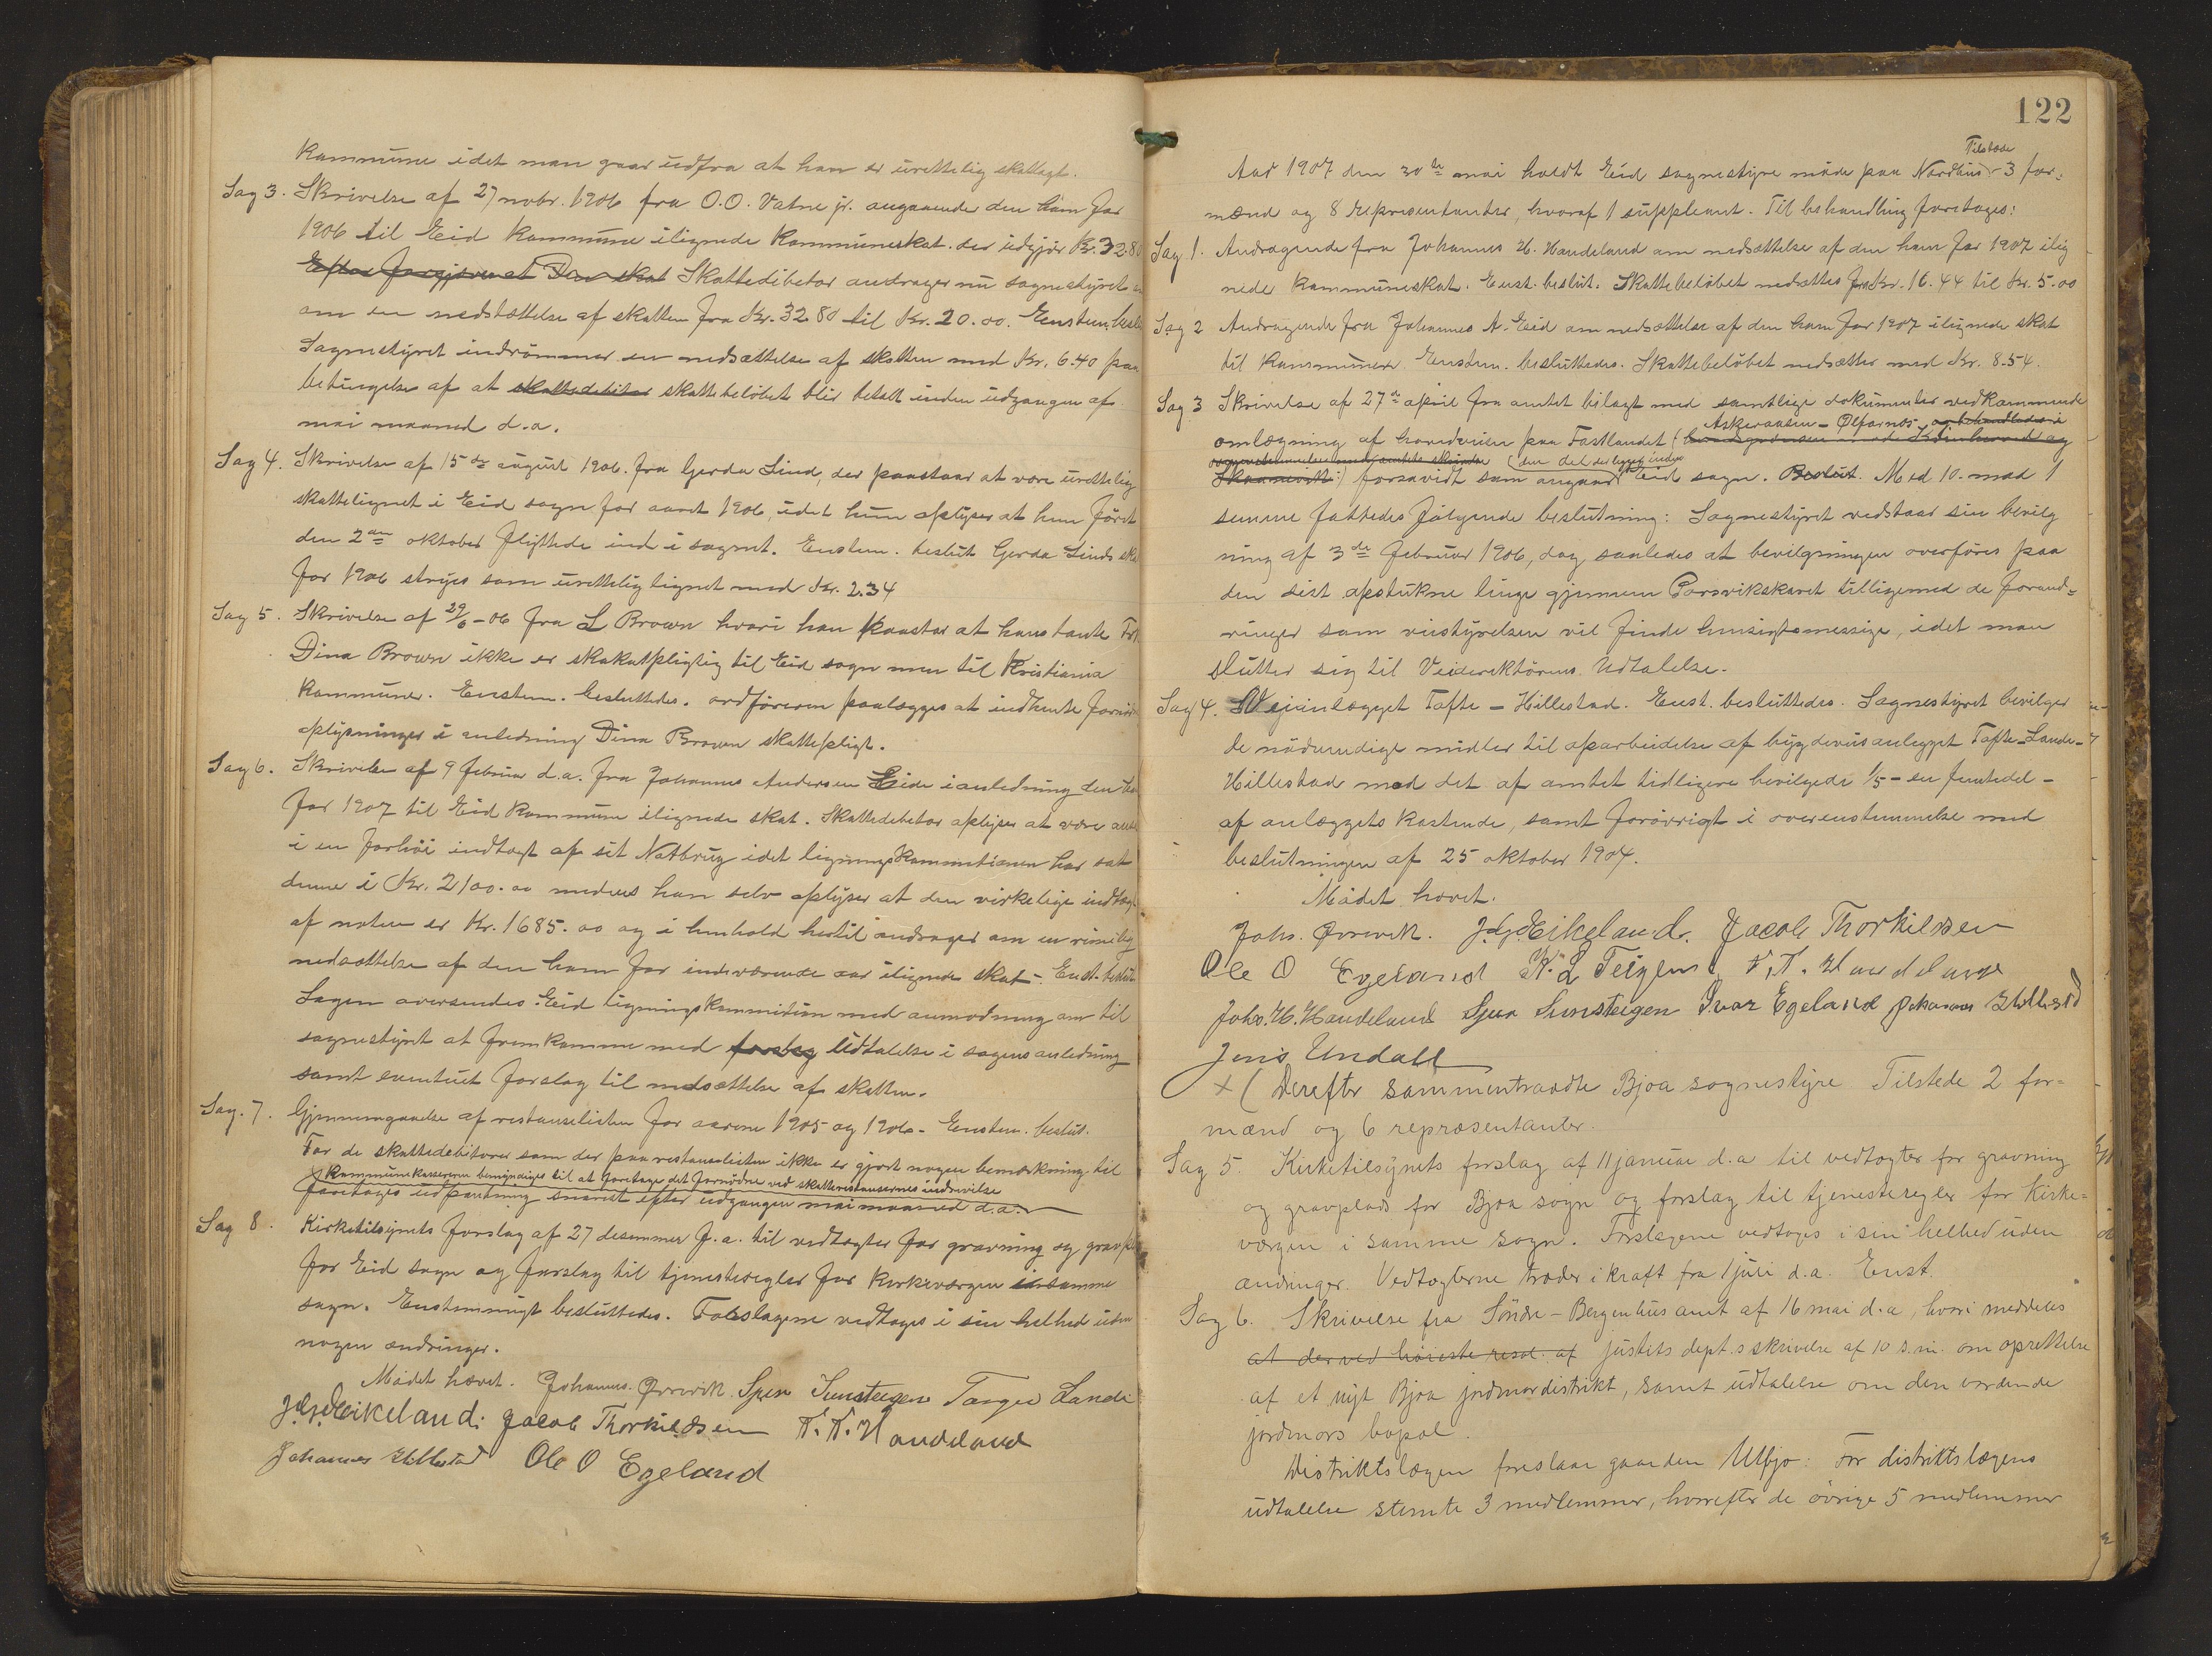 kommune idet man gaar udfra at han er urettelig skatlagt.
Sag 3. Skrivelse af 27 novbr. 1906 fra O.O. Vatne jr. angaaende den ham for
1906 til Eid kommune ilignede kommuneskat. der udgjør Kr. 32.80
Efter forgjæves at Den skat Skattedebetor andrager nu sognestyret
om en nedsættelse af skatten fra Kr. 32.80 til Kr. 20.00. Eenstem. besl
Sognestyret indrømmer en nedsættelse af skatten med Kr. 6.40 paa
betingelse af at skattedebitor skattebeløbet blir betalt inden udgangen af
mai maaned d.a.
Sag 4. Skrivelse af 15de august 1906. fra Gerda Lind, der paastaar at være urettelig
skattelignet i Eid sogn for aaret 1906, idet hun oplyser at hun først
den 2den oktober flyttede ind i sognet. Enstem. beslut Gerda Linds ska
for 1906 stryges som urettelig lignet med Kr. 2.34
Sag 5. Skrivelse af 29/6-06 fra L Brown hvori han paastar at hans tante Frk
Dina Brown ikke er skakatpligtig til Eid sogn men til Kristiania
kommune. Enstem. besluttedes. ordføreren paalægges at indhente fornødn
oplysninger i anledning Dina Brown skattepligt.
Sag 6. Skrivelse af 9 februar d.a. fra Johannes Andersen Eide i anledning den ham
for 1907 til Eid kommune ilignede skat. Skattedebetor oplyser at være ansa
i en forhøi indtægt af sit Notbrug idet ligningskommitionen har sat
denne i Kr. 2100.00 medens han selv oplyser at den virkelige indtægt
af noten er Kr. 1685.00 og i henhold hertil andrager om en rimelig
nedsættelse af den ham for indeværende aar ilignede skat. Enst. beslut
Sagen oversendes Eid ligningskommition med anmodning om til
sognestyret at fremkomme med forslag Udtalelse i sagens anledning
samt eventuet forslag til nedsættelse af skatten.
Sag. 7. Gjennemgaaelse af restanselisten for aarene 1905 og 1906. Enstem. beslut.
For de skattedebitorer som der paa restanselisten ikke er gjort nogen bemærkning til
Kommunekassereren bemyndiges til at foretage det fornødne ved skatterestansernes inddrivelse
foretages udpantning snarest efter udgangen mai maaned d.a.
Sag 8. Kirketilsynets forslag af 27 desemmer f.a. til vedtægter for gravning og gravpl
for Eid sogn og forslag til tjenesteregler for kirkeværgen i samme
sogn. Enstemmigt besluttedes. Forslagene vedtages i sin helhed uden
nogen ændringer.
Mødet hævet. Johannes Ørrevik Sjur Sunsteigen Torger Lande
J. G. Eikeland. Jacob Thorkildsen T. T. Handeland
Johannes Hillestad Ole O Egeland
122
Tilstede
Aar 1907 den 30te mai holdt Eid sognestyre møde paa Nordhus 3 for-
mænd og 8 repræsentanter, hvoraf 1 suppleant. Til behandling foretoges:
Sag 1. Andragende fra Johannes H. Handeland om nedsættelse af den ham for 1907 ilig
nede kommuneskat. Enst. beslut. Skattebeløbet nedsættes fra Kr. 16.44 til Kr. 5.00
Sag 2 Andragende fra Johannes A. Eid om nedsættelse af den ham for 1907 ilignede skat
til kommunen Enstem. besluttedes. Skattebeløbet nedsættes med Kr. 8.54.
Sag 3 Skrivelse af 27de april fra amtet bilagt med samtlige dokumenter vedkommende
Askeraasen - Ølfarnes og behandledes i
omlægning af hovedveien paa Fastlandet (
(den del der ligger inden
Skaanevik) forsavidt som angaar Eid sogn. Beslut. Med 10. mod 1
stemme fattedes følgende beslutning: Sognestyret vedstaar sin bevilg
ning af 3de februar 1906, dog saaledes at bevilgningen overføres paa
den sist opstukne linge gjennem Porsvikskaret tilligemed de forand-
ringer som veistyrelsen vil finde hensigtsmessige, idet man
slutter sig til Veidirektørens Udtalelse.
Sag 4. Veianlægget Tofte - Hillestad. Enst. besluttedes. Sognestyret bevilger
de nødvendige midler til oparbeidelse af bygdeveisanlegget Tofte - Lande -
Hillestad mod det af amtet tidligere bevilgede 1/5 - en femtedel -
af anlæggets kostende, samt forøvrigt i overenstemmelse med
beslutningen af 25 oktober 1904.
Mødet hævet.
Johs. Ørrevik. J. G. Eikeland. Jacob Thorkildsen
Ole O Egeland K. L Teigen T. T. Handeland
Johs. H. Handeland Sjur Sunsteigen Ivar Egeland Johannes Hillestad
Jens Undall
+ ( Derefter sammentraadte Bjoa sognestyre Tilstede 2 for-
mænd og 6 repræsentanter.
Sag 5. Kirketilsynets forslag af 11 januar d.a til vedtægter for gravning
og gravplads for Bjoa sogn og forslag til tjenesteregler for Kirke-
værgen i samme sogn. Forslagene vedtoges i sin helhed uden
ændringer. Vedtægterne træder i kraft fra 1 juli d.a. Enst.
Sag 6. Skrivelse fra Söndre-Bergenhus amt af 16 mai d.a, hvori meddeles
at der ved høieste resol. af justits dept.s skrivelse af 10 s.m. om oprettelse
af et nyt Bjoa jordmordistrikt, samt udtalelse om den vordende
jordmors bopæl.
Distriktslægen foreslaar gaarden Ulbjo: For distriktslægens
udtalelse stemte 3 medlemmer, hvorefter de øvrige 5 medlemmer